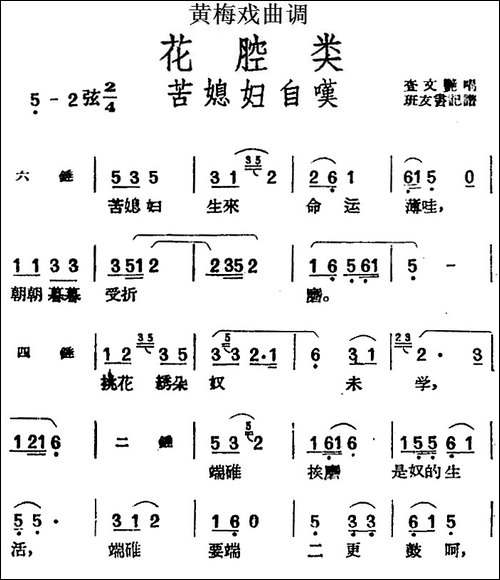 黄梅戏曲调
花腔类
5 - 2 弦 2/4
苦媳妇自嘆
查文艷唱
班友書記譜
六 錘 | 5 3 5 | 3 1 3 5 2 | 2 6 1 | 6 1 5 0
苦媳妇 生來 命 运 薄哇,
1 1 3 3 | 3 5 1 2 | 2 3 5 2 | 1 6 5 6 1 | 5 -
朝朝暮暮 受折 磨。
四 錘 | 1 2 3 5 3 5 | 3 3 2·1 | 6 3 1 | 2 3 2· 3
挑花 綉朵 奴 未 学,
1 2 1 6 | 二 錘 | 5 3 2 | 1 6 1 6 | 1 5 5 6 1
端碓 挨磨 是奴的生
5 5· | 3 1 2 | 1 6 0 | 5 3 3 | 6 1 5
活, 端碓 要端 二 更 鼓呵,